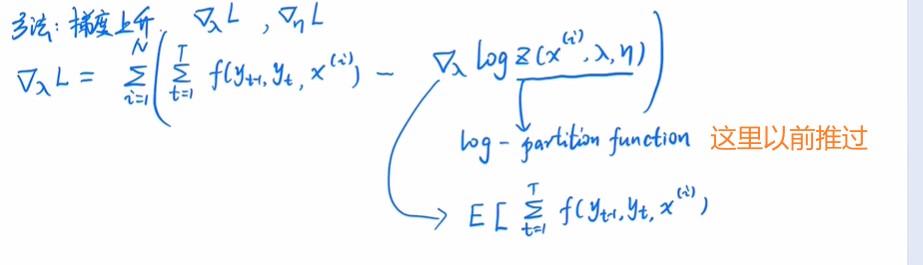 方法：梯度上升. ∇_λ L , ∇_η L
∇_λ L = \sum_{i=1}^{N} ( \sum_{t=1}^{T} f(y_{t-1}, y_t, x^{(i)}) - ∇_λ log Z(x^{(i)}, λ, η) )
log - partition function 这里以前推过
E [ \sum_{t=1}^{T} f(y_{t-1}, y_t, x^{(i)})